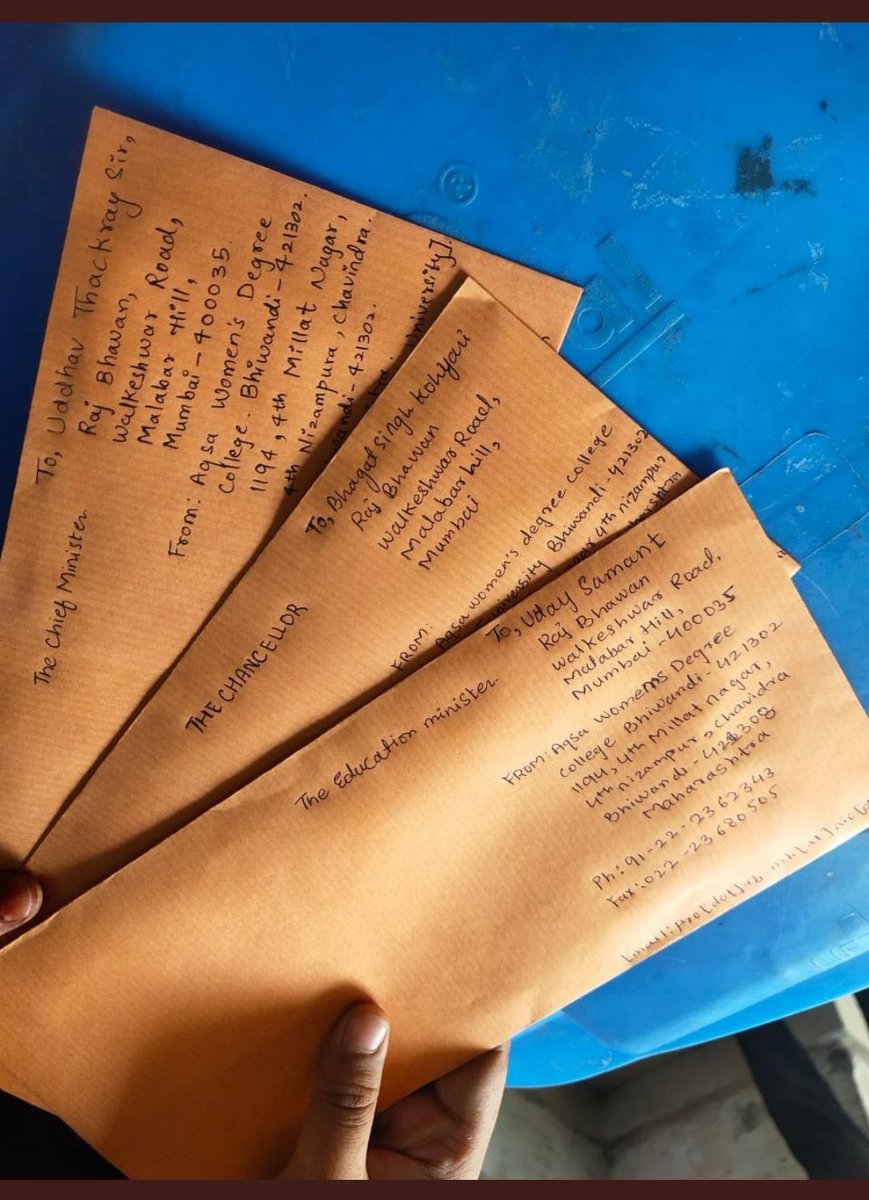 To, Uddhav Thackray Sir,
Raj Bhavan,
Walkeshwar Road,
Malabar Hill,
Mumbai - 400035.
The Chief Minister
From: Aqsa Women's Degree
College. Bhiwandi - 421302.
1194, 4th Millat Nagar,
4th Nizampura, Chavindra.
421302.
University].
To, Bhagat singh Kohyari
Raj Bhawan
Walkeshwar Road,
Malabar hill,
Mumbai
THE CHANCELLOR
FROM: Aqsa women's degree college
University Bhiwandi - 421302
4th nizampur
To, Uday Samant
Raj Bhawan
Walkeshwar Road,
Malabar Hill,
Mumbai - 400035
The Education minister
From: Aqsa womens Degree
college Bhiwandi - 421302
1194, 4th Millat nagar,
4th nizampur, chavidra
Bhiwandi - 421308
Maharashtra
Ph: 91-22-2362343
Fax: 022-23680505